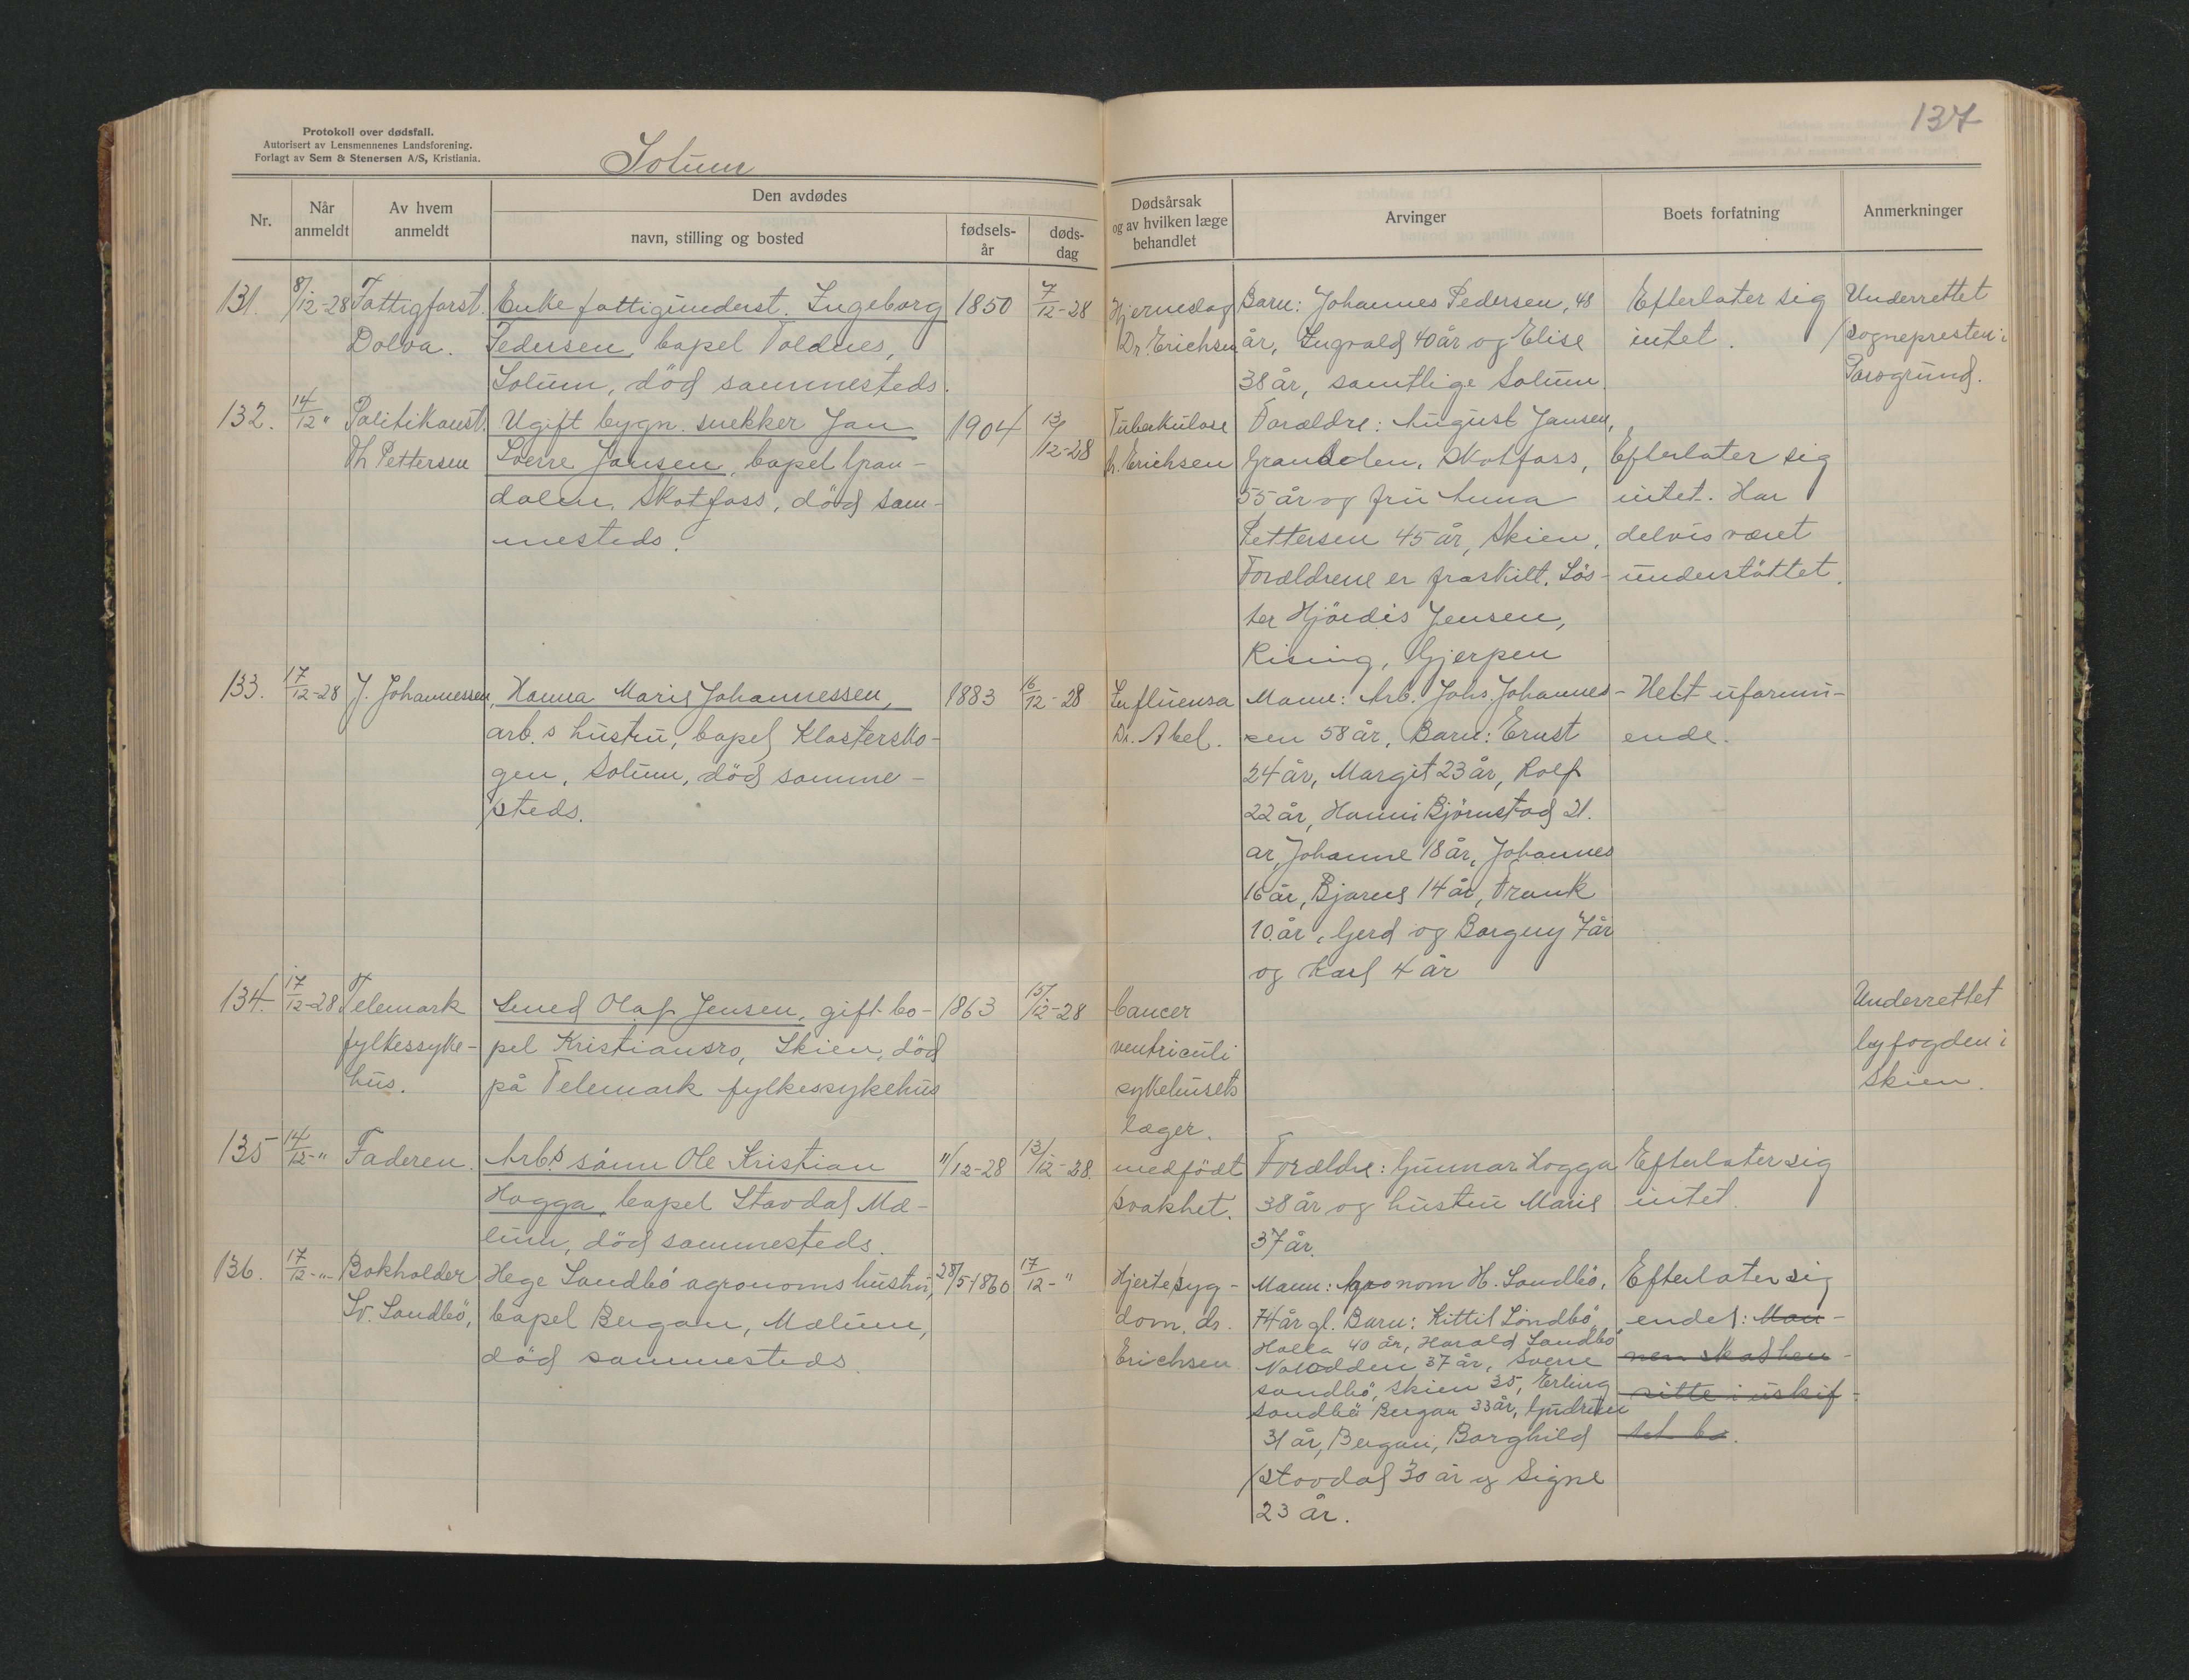 137
Protokoll over dødsfall.
Autorisert av Lensmennenes Landsforening.
Forlagt av Sem & Stenersen A/S, Kristiania.
Solum
Nr.
Når anmeldt
Av hvem anmeldt
Den avdødes
navn, stilling og bosted
fødsels-år
døds-dag
Dødsårsak og av hvilken læge behandlet
Arvinger
Boets forfatning
Anmerkninger
131. 8/12-28 Fattigforst. Enke fattigunderst. Ingeborg 1850 7/12-28 Hjerneslag Barn: Johannes Pedersen, 48 Efterlater sig Underrettet
Dolva. Pedersen, bopel Voldnes, Dr Erichsen år, Ingvald 40 år og Elise intet. sognepresten i
Solum, död sammesteds. 38 år, samtlige Solum. Porsgrund.
132. 14/12 " Politikonst. Ugift bygn. snekker Jan 1904 13/12-28 Tuberkulose Forældre: August Jansen,
Th Pettersen Sverre Jansen, bopel Gran- dr. Erichsen Grandalen, Skotfoss, Efterlater sig
dalen, Skotfoss, död sam- 55 år og fru Anna intet. Har
mesteds. Pettersen 45 år, Skien, delvis været
Forældrene er fraskilt. Sös- understöttet.
ter Hjördis Jensen,
Rising, Gjerpen
133. 17/12-28 J. Johannessen, Hanna Marie Johannessen, 1883 16/12-28 Influensa Mann: Arb. Johs. Johannes- Helt uformu-
arb.s hustru, bopel Klostersko- Dr. Abel. sen 58 år, Barn: Ernst ende.
gen, Solum, död samme- 24 år, Margit 23 år, Rolf
steds. 22 år, Hanni Björnstad 21.
år, Johanne 18 år, Johannes
16 år, Bjarne 14 år, Frank
10 år, Gerd og Borgny 7 år
og Karl 4 år
134. 17/12-28 Telemark Smed Olaf Jensen, gift bo- 1863 15/12-28 Cancer Underrettet
fylkessyke- pel Kristiansro, Skien, död ventriculi byfogden i
hus. på Telemark fylkessykehus sykehusets Skien.
læger.
135 14/12-" Faderen. Arb.s sönn Ole Kristian 11/12-28 13/12-28. medfödt Forældre: Gunnar Hogga Efterlater sig
Hogga, bopel Stavdal Mæ- svakhet. 38 år og hustru Marie intet.
lum, död sammesteds. 37 år.
136. 17/12-"- Bokholder Hege Sandbö agronoms hustru, 28/5-1860 17/12-" Hjertesyg- Mann: Agronom H. Sandbö, Efterlater sig
Sv. Sandbö, bopel Bergan, Mælum, dom, dr. 74 år gl. Barn: Kittil Sandbö endel: Man-
död sammesteds. Erichsen Holla 40 år, Harald Sandbö nen skal hen-
Notodden 37 år, Sverre sitte i uskif-
Sandbö, Skien 35, Erling tet bo.
Sandbö Bergan 33 år, Gudrun
31 år, Bergan, Borghild
Stavdal 30 år og Signe
23 år.